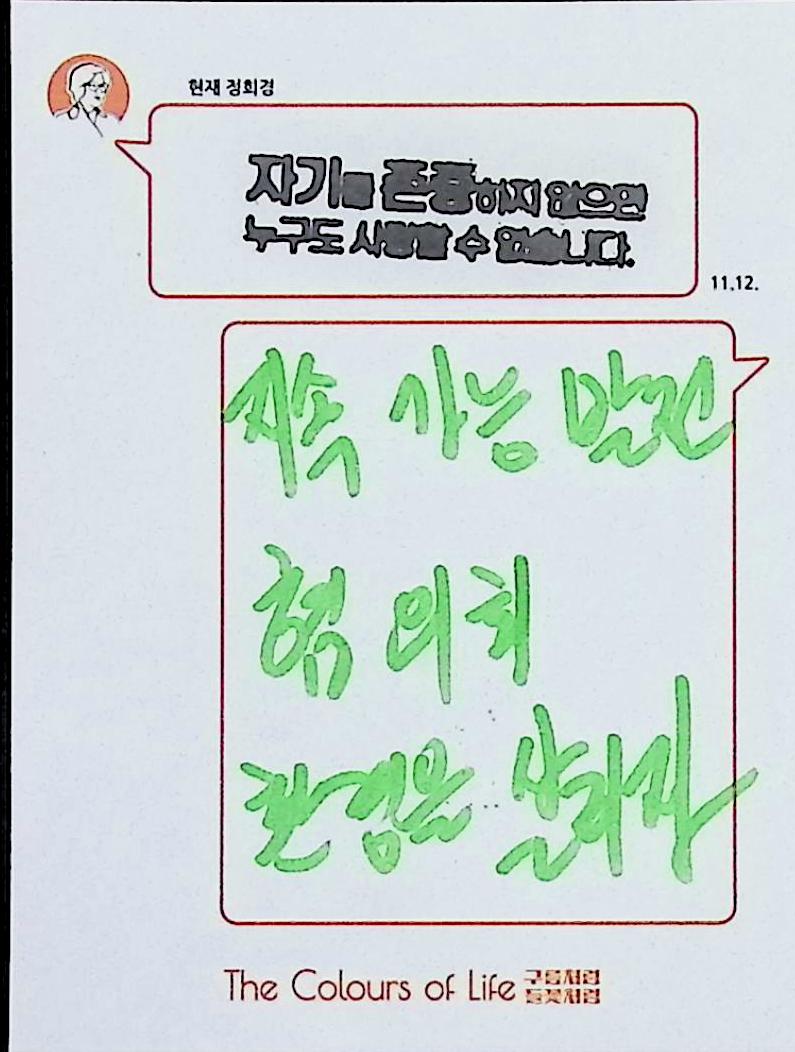 현재 정희경
자기를 존중하지 않으면
누구도 사랑할 수 없습니다.
11.12.
지속 가능 발전
협의회
환경을 살리자
The Colours of Life 구름처럼
들꽃처럼